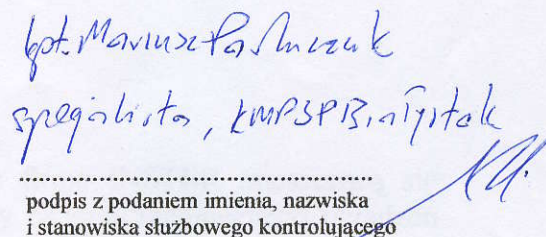 kpt. Mariusz
specjalista, KMPSP Białystok
........................................................
podpis z podaniem imienia, nazwiska
i stanowiska służbowego kontrolującego